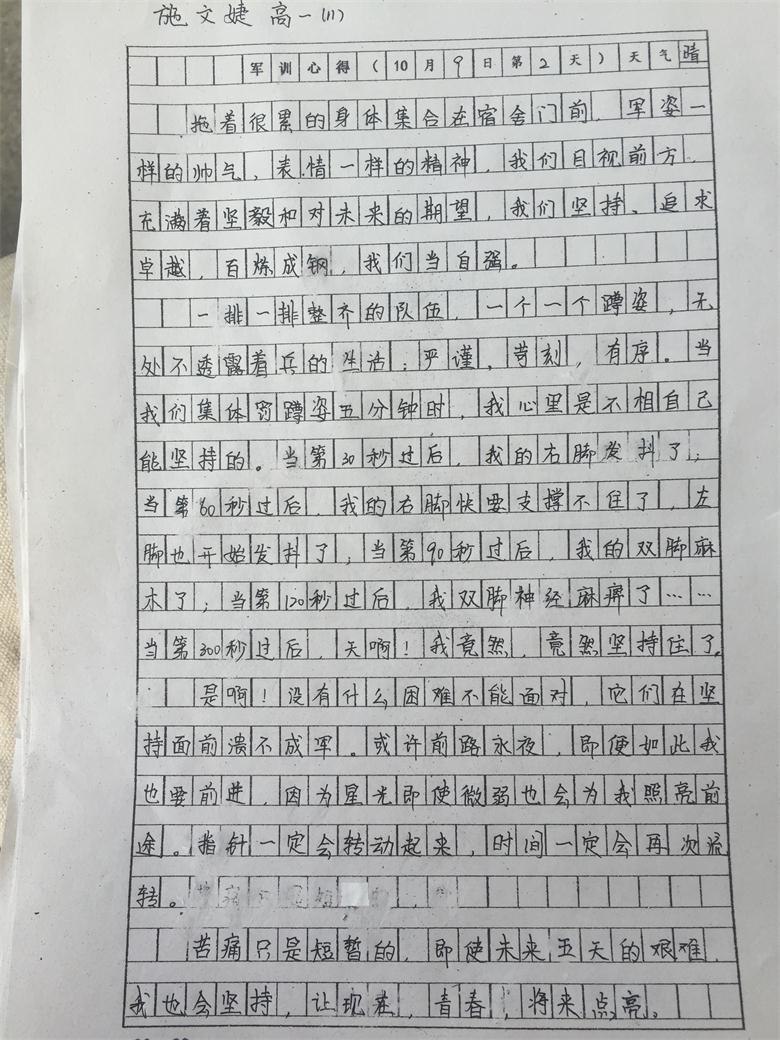 施文婕 高一(11)
军训心得(10月9日第2天)天气晴
拖着很累的身体集合在宿舍门前,军姿一
样的帅气,表情一样的精神,我们目视前方,
充满着坚毅和对未来的期望,我们坚持、追求
卓越,百炼成钢,我们当自强。
一排一排整齐的队伍,一个一个蹲姿,无
处不透露着兵的生活:严谨,苛刻,有序。当
我们集体罚蹲姿五分钟时,我心里是不相自己
能坚持的。当第30秒过后,我的右脚发抖了;
当第60秒过后,我的右脚快要支撑不住了,左
脚也开始发抖了;当第90秒过后,我的双脚麻
木了;当第120秒过后,我双脚神经麻痹了……
当第300秒过后,天啊!我竟然,竟然坚持住了。
是啊!没有什么困难不能面对,它们在坚
持面前溃不成军。或许前路永夜,即便如此我
也要前进,因为星光即使微弱也会为我照亮前
途。指针一定会转动起来,时间一定会再次流
转。
苦痛只是短暂的,即使未来五天的艰难,
我也会坚持,让现在,青春,将来点亮。